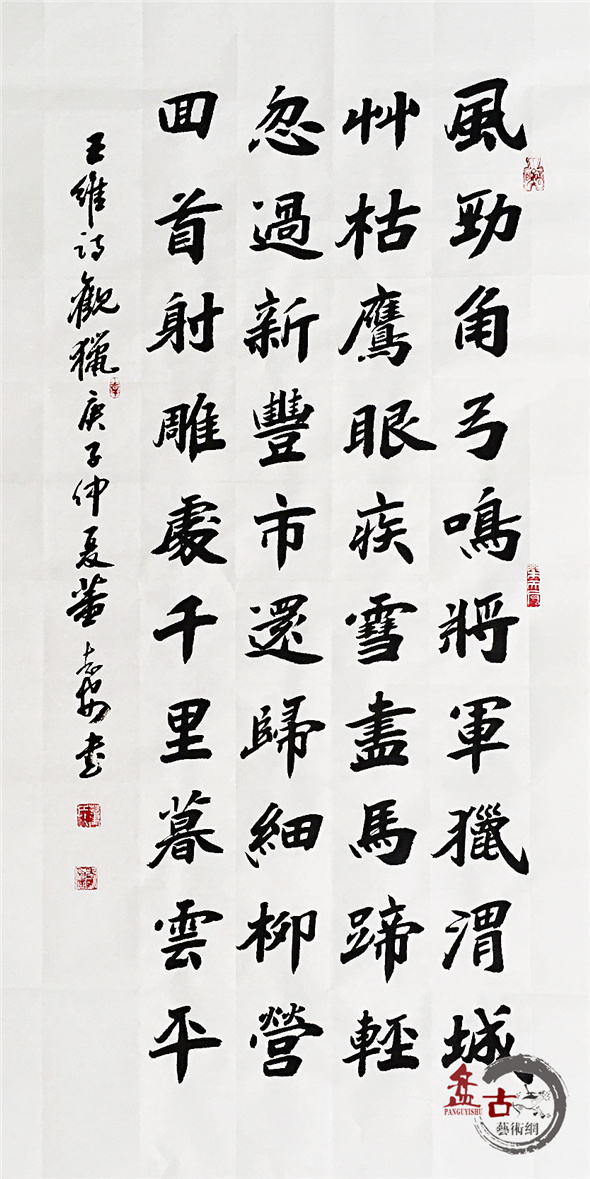 風勁角弓鳴將軍獵渭城
艸枯鷹眼疾雪盡馬蹄輕
忽過新豐市還歸細柳營
回首射雕處千里暮雲平
王維詩觀獵庚子仲夏董志書
盘古
PANGUYISHU
藝術網